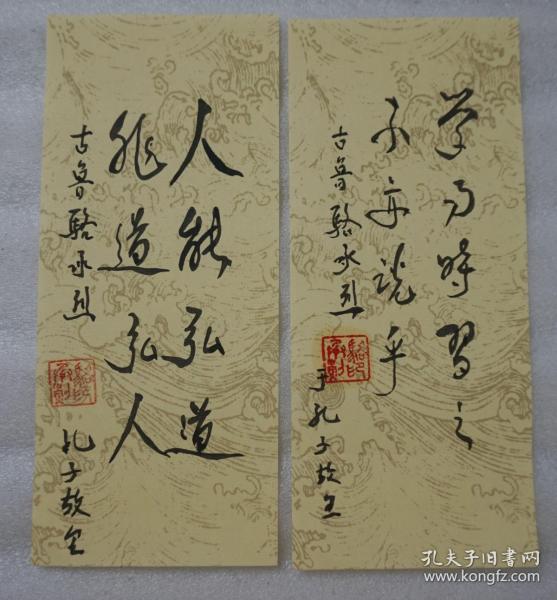 学而時習之
不亦说乎
古鲁骆承烈
于孔子故里
人能弘道
非道弘人
古鲁骆承烈
孔子故里
孔夫子旧书网
www.kongfz.com